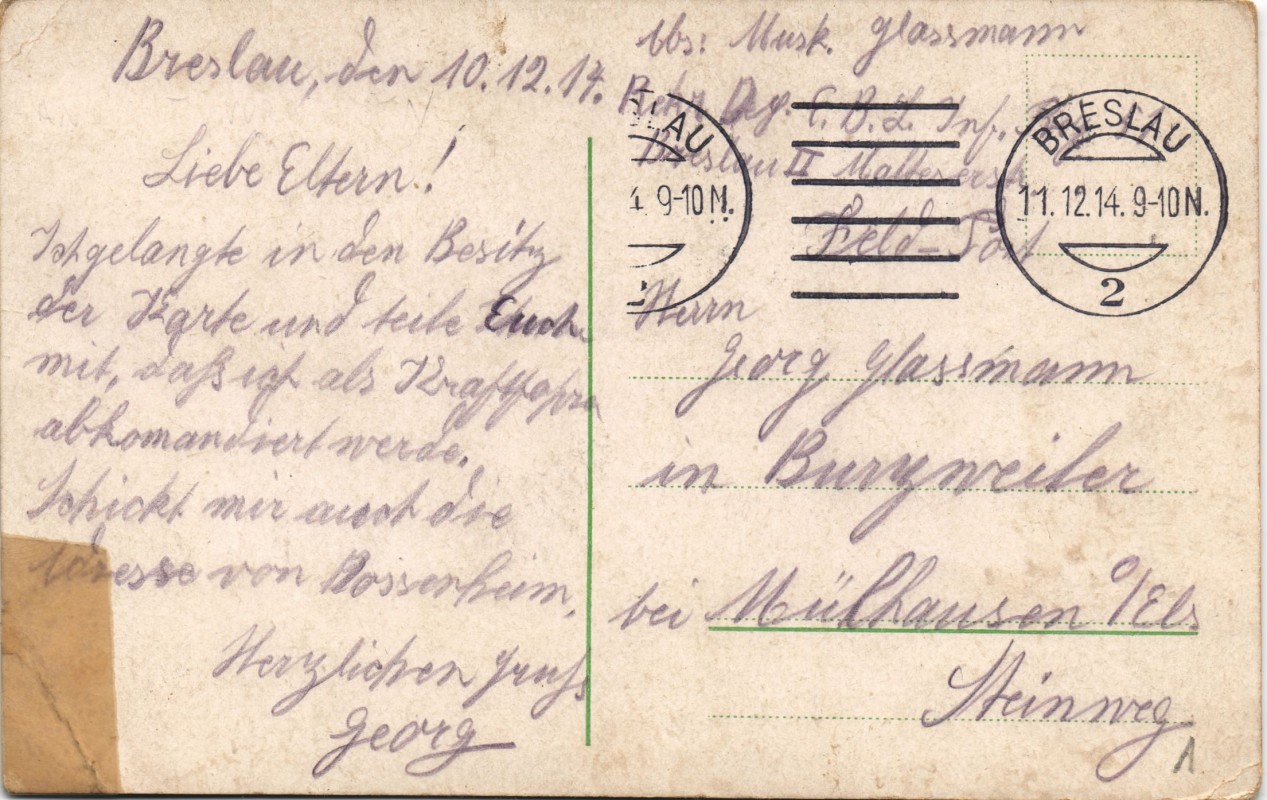 Breslau, den 10.12.14.
Liebe Eltern!
Ich gelangte in den Besitz
der Karte und teile Euch
mit, daß ich als Kraftfahrer
abkomandiert werde.
Schickt mir auch die
Adresse von Bossenheim.
Herzlichen Gruß
Georg
Abs: Musk. Glassmann
Rekr. Dep. E. B. L. Inf.
Breslau II Malteserstr
Feld-Post
BRESLAU
11.12.14. 9-10 N.
2
LAU
9-10 N.
Herrn
Georg Glassmann
in Burzweiler
bei Mülhausen i/Els
Steinweg